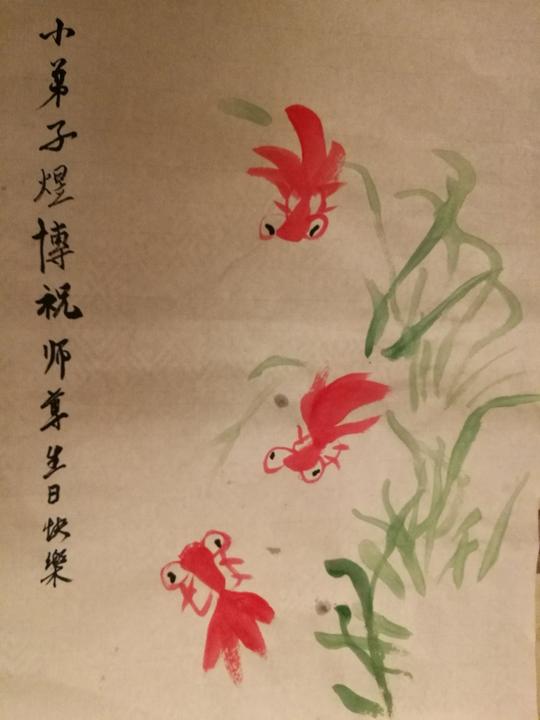 小弟子煜博祝师尊生日快樂